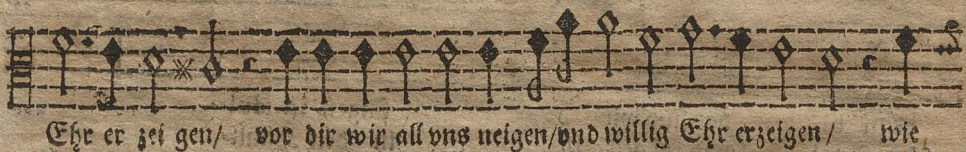 Ehr er zei gen/ vor dir wir all vns neigen/vnd willig Ehr erzeigen/ wie